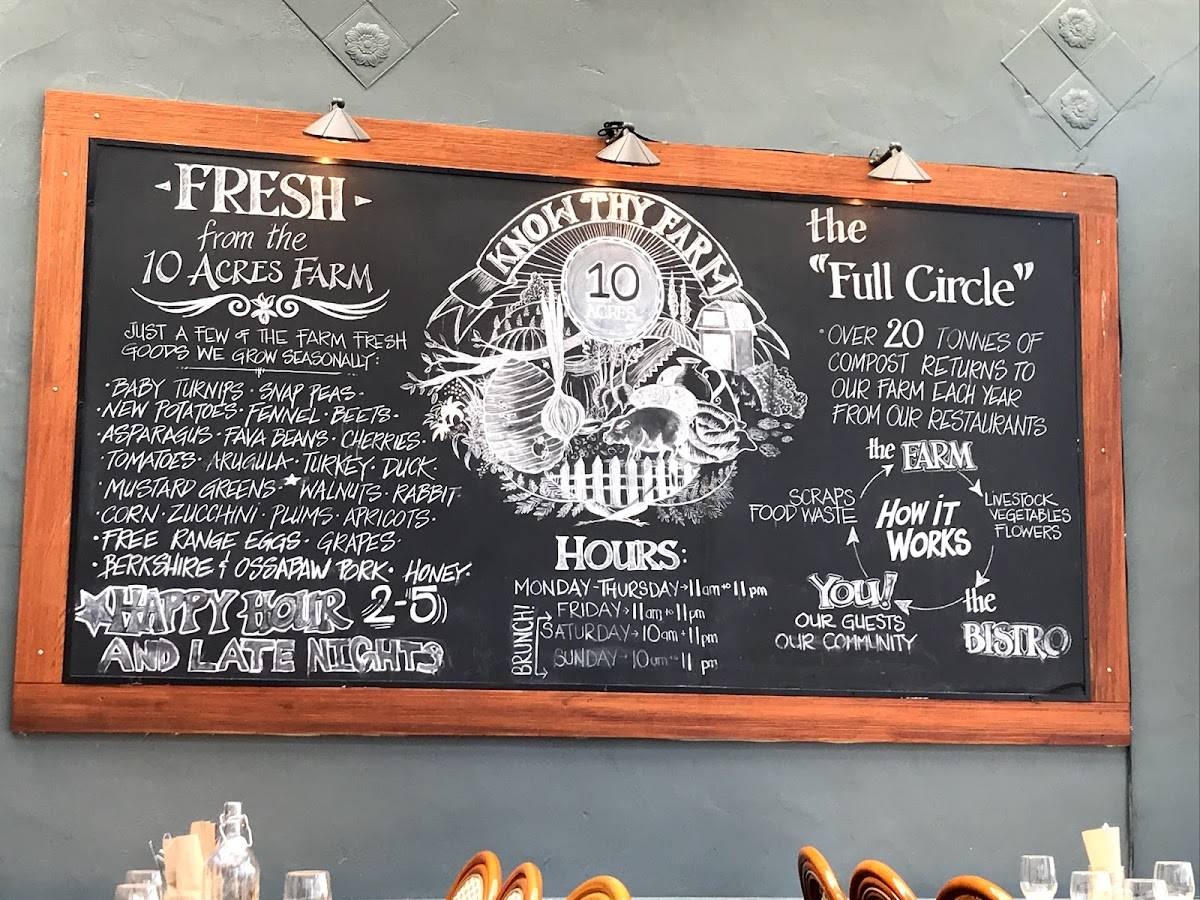 FRESH
from the
10 ACRES FARM
JUST A FEW OF THE FARM FRESH
GOODS WE GROW SEASONALLY:
· BABY TURNIPS · SNAP PEAS ·
· NEW POTATOES · FENNEL · BEETS ·
· ASPARAGUS · FAVA BEANS · CHERRIES ·
· TOMATOES · ARUGULA · TURKEY · DUCK ·
· MUSTARD GREENS · WALNUTS · RABBIT ·
· CORN · ZUCCHINI · PLUMS · APRICOTS ·
· FREE RANGE EGGS · GRAPES ·
· BERKSHIRE & OSSABAW PORK · HONEY ·
HAPPY HOUR 2-5
AND LATE NIGHTS
KNOW THY FARM
10
ACRES
HOURS:
MONDAY-THURSDAY→11am to 11pm
BRUNCH!
FRIDAY→11am to 11pm
SATURDAY→10am→11pm
SUNDAY→10am→11 pm
the
"Full Circle"
· OVER 20 TONNES OF
COMPOST RETURNS TO
OUR FARM EACH YEAR
FROM OUR RESTAURANTS
the FARM
LIVESTOCK
VEGETABLES
FLOWERS
the
BISTRO
YOU!
OUR GUESTS
OUR COMMUNITY
SCRAPS
FOOD WASTE
HOW IT
WORKS